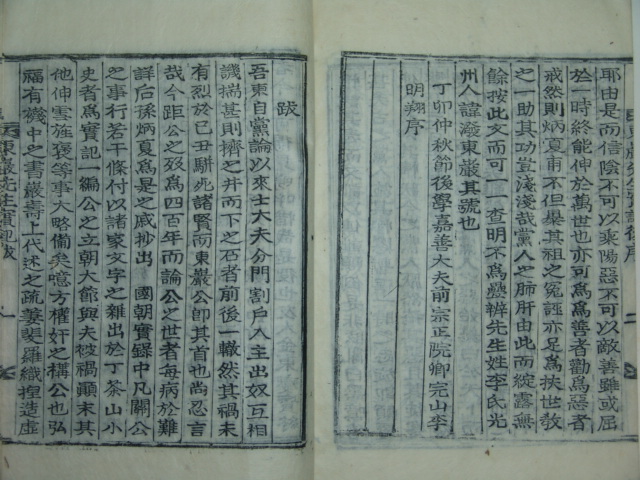 耶由是而信陰不可以乘陽惡不可以敵善雖或屈
於一時終能伸於萬世也亦可爲爲善者勸爲惡者
戒然則炳夏甫不但舉其祖之寃誣亦足爲挾世教
之一助其功豈淺淺哉黨人之肺肝由此而綻露無
餘按此文而可一一查明不爲懸辨先生姓李氏光
州人諱潑東巖其號也
丁卯仲秋節後學嘉善大夫前宗正院卿完山李
明翔序
跋
吾東自黨論以來士大夫分門割戶入主出奴互相
譏揣甚則擠之井而下之石者前後一轍然其禍未
有烈於己丑騈死諸賢而東巖公卽其首也尚忍言
哉今距公之歿爲四百年而論公之世者每病於難
詳后孫炳夏爲是之慼抄出 國朝實錄中凡關公
之事行若干條付以諸家文字之雜出於丁茶山小
史者爲實記一編公之立朝大節與夫被禍顚末其
他伸雪旌褒等事大略備矣噫方權奸之構公也弘
福有磯中之書巖壽上代述之疏萋斐羅織揑造虛
東巖先生實記跋 一